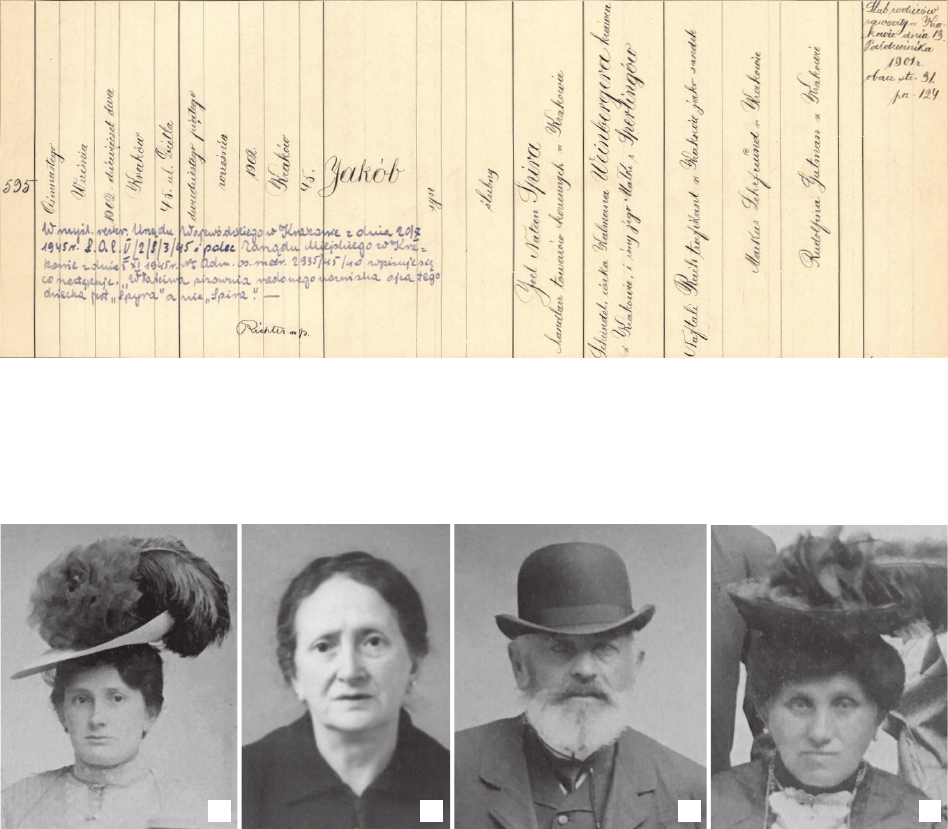 595
Ośmnastego
Września
1902. dziewięćset dwa
Kraków
45. ul. Dietla
dwudziestego piątego
września
1902.
Kraków
45.
Jakób
syn
ślubny
Joel Natan Spira
handlarz towarów korzennych w Krakowie
Scheindel, córka Kalmana Weinbergera krawca
w Krakowie, i żony jego Malki z Sperlingów
Naftali Rück w Krakowie jako sandek
Markus Lehrfreund w Krakowie
Rudolfina Gutman w Krakowie
Ślub rodziców
zawarty w Kra-
kowie dnia 13.
Października
1901r.
obacz str. 31.
pz - 124
W myśl. reskr. Urzędu Wojewódzkiego w Krakowie z dnia 20/X
1945r. L.A.P. II/2/8/3/45 i polec Zarządu Miejskiego w Kra-
kowie z dnia 5 XI 1945r. Nr. Adm. os. metr. 2995/45/40 wpisuje się
co następuje: "Właściwa pisownia rodowego nazwiska ojca tego
dziecka jest „Spyra" a nie „Spira". —
Richter mp.